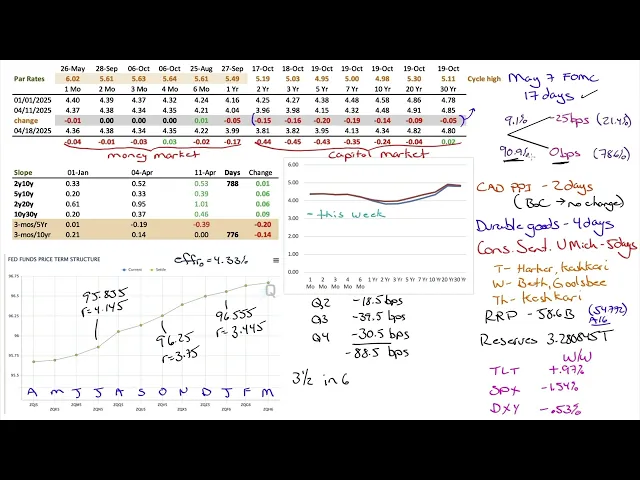 26-May 28-Sep 06-Oct 06-Oct 25-Aug 27-Sep 17-Oct 18-Oct 19-Oct 19-Oct 19-Oct 19-Oct 19-Oct
Par Rates 6.02 5.61 5.63 5.64 5.61 5.49 5.19 5.03 4.95 5.00 4.98 5.30 5.11 Cycle high
1 Mo 2 Mo 3 Mo 4 Mo 6 Mo 1 Yr 2 Yr 3 Yr 5 Yr 7 Yr 10 Yr 20 Yr 30 Yr
01/01/2025 4.40 4.39 4.37 4.32 4.24 4.16 4.25 4.27 4.38 4.48 4.58 4.86 4.78
04/11/2025 4.37 4.38 4.34 4.35 4.21 4.04 3.96 3.98 4.15 4.32 4.48 4.91 4.85
change -0.01 0.00 0.00 0.00 0.01 -0.05 -0.15 -0.16 -0.20 -0.19 -0.14 -0.09 -0.05
04/18/2025 4.36 4.38 4.34 4.35 4.22 3.99 3.81 3.82 3.95 4.13 4.34 4.82 4.80
-0.04 -0.01 -0.03 0.03 -0.02 -0.17 -0.44 -0.45 -0.43 -0.35 -0.24 -0.04 0.02
money market
Capital market
Slope 01-Jan 04-Apr 11-Apr Days Change
2y10y 0.33 0.52 0.53 788 0.01
5y10y 0.20 0.53 0.39 0.06
2y20y 0.61 0.95 1.01 0.06
10y30y 0.20 0.37 0.46 0.09
3-mos/5Yr 0.01 -0.19 -0.39 -0.20
3-mos/10yr 0.21 0.14 0.00 776 -0.14
6.00
5.00
4.00
3.00
2.00
1.00
0.00
- this week
1 Mo 2 Mo 3 Mo 4 Mo 6 Mo 1 Yr 2 Yr 3 Yr 5 Yr 7 Yr 10 Yr 20 Yr 30 Yr
FED FUNDS PRICE TERM STRUCTURE
effr = 4.33%
Current Settle
96.75
96
95.75
95.5
95.855
r=4.145
96.25
r=3.75
96.555
r=3.445
Q
A M J J A S O N D J F M
Q2 -18.5 bps
Q3 -39.5 bps
Q4 -30.5 bps
-88.5 bps
3 1/2 in 6
May 7 FOMC
17 days ✓
9.1% -25 bps (21.4%)
90.9% 0 bps (78.6%)
CAD PPI - 2 days
(BoC → no change)
Durable goods - 4 days
Cons. Sent. U Mich - 5 days
T- Harker, Kashkari
W- Beth, Goolsbee
Th- Kashkari
RRP - 58.6 B (54.792)
A16
Reserves 3.280845T
W/W
TLT +.97%
SPX -1.54%
DXY -.53%